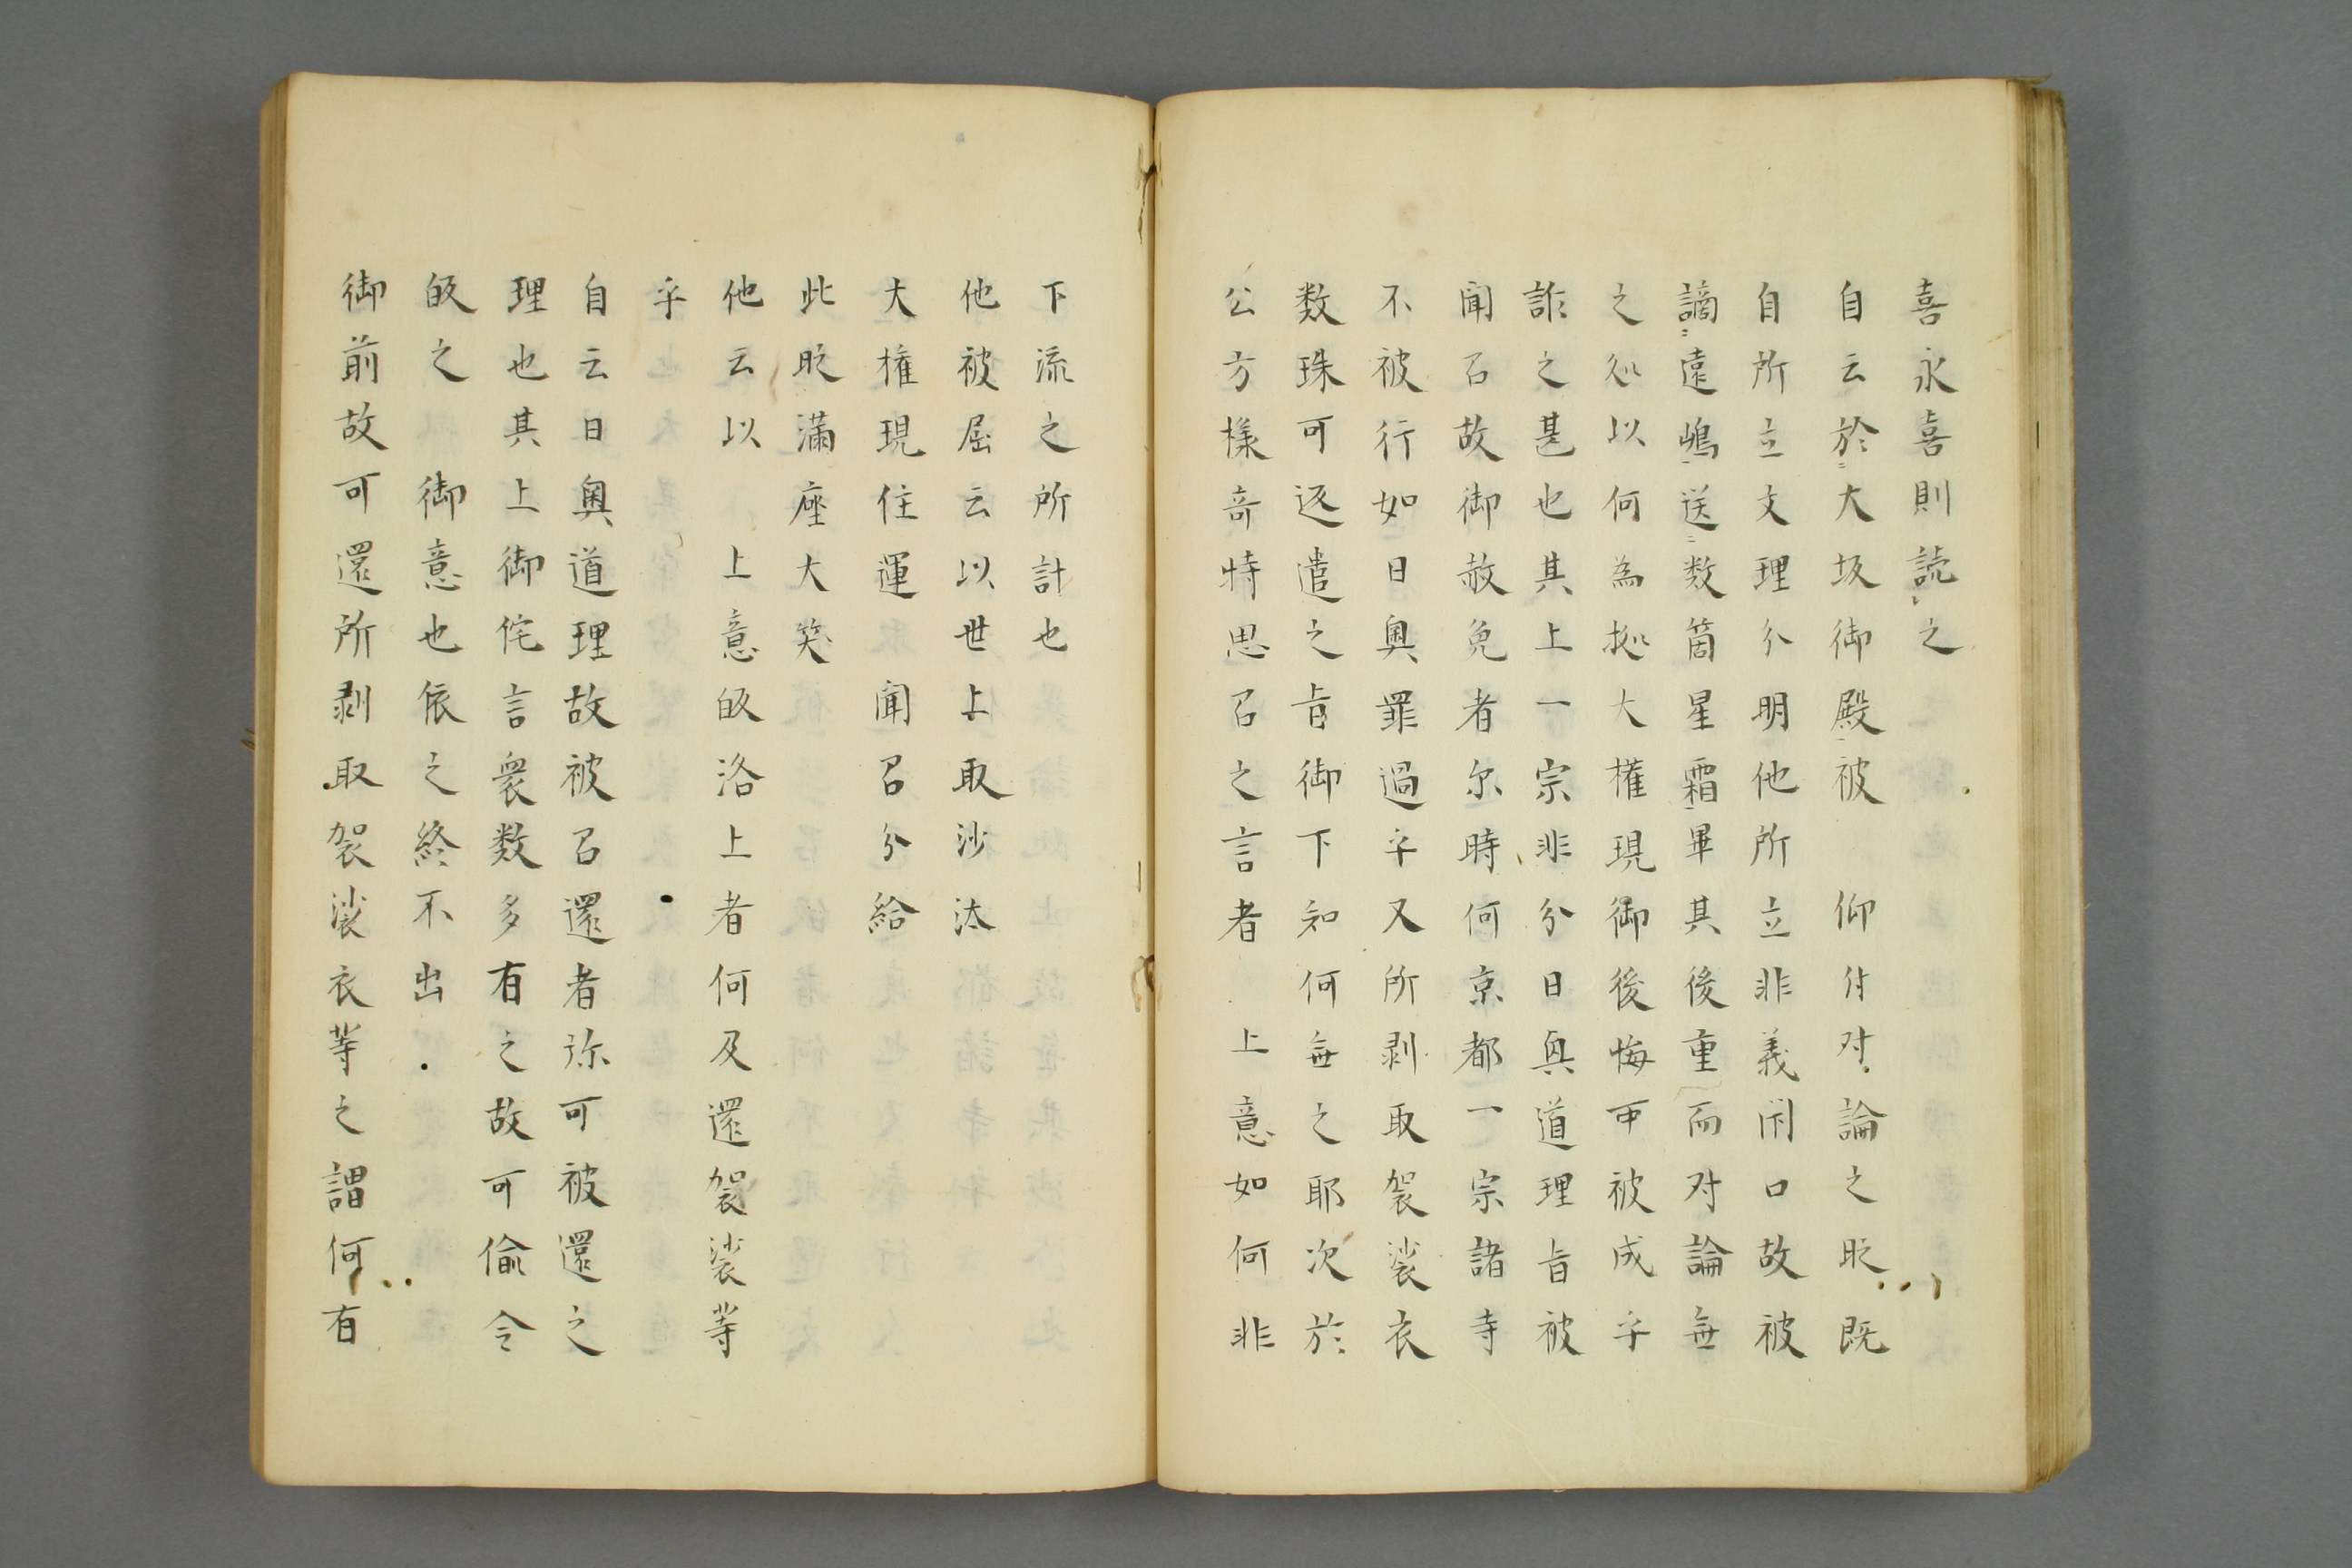 喜永喜則読之
自云於大坂御殿被　仰付対論之眤既
自所立文理分明他所立非義閇口故被
謫遠嶋送数箇星霜畢其後重而対論無
之処以何為拠大権現御後悔可被成乎
詐之甚也其上一宗非分日奥道理旨被
聞召故御赦免者尔時何京都一宗諸寺
不被行如日奥罪過乎又所剥取袈裟衣
数珠可返遣之旨御下知何無之耶次於
公方様奇特思召之言者　上意如何非
下流之所計也
他被屈云以世上取沙汰
大権現住運　聞召分給
此眤満座大笑
他云以　上意皈洛上者何及還袈裟等
乎
自云日奥道理故被召還者弥可被還之
理也其上御侘言衆数多有之故可偷令
皈之　御意也依之終不出
御前故可還所剥取袈裟衣等之謂何有